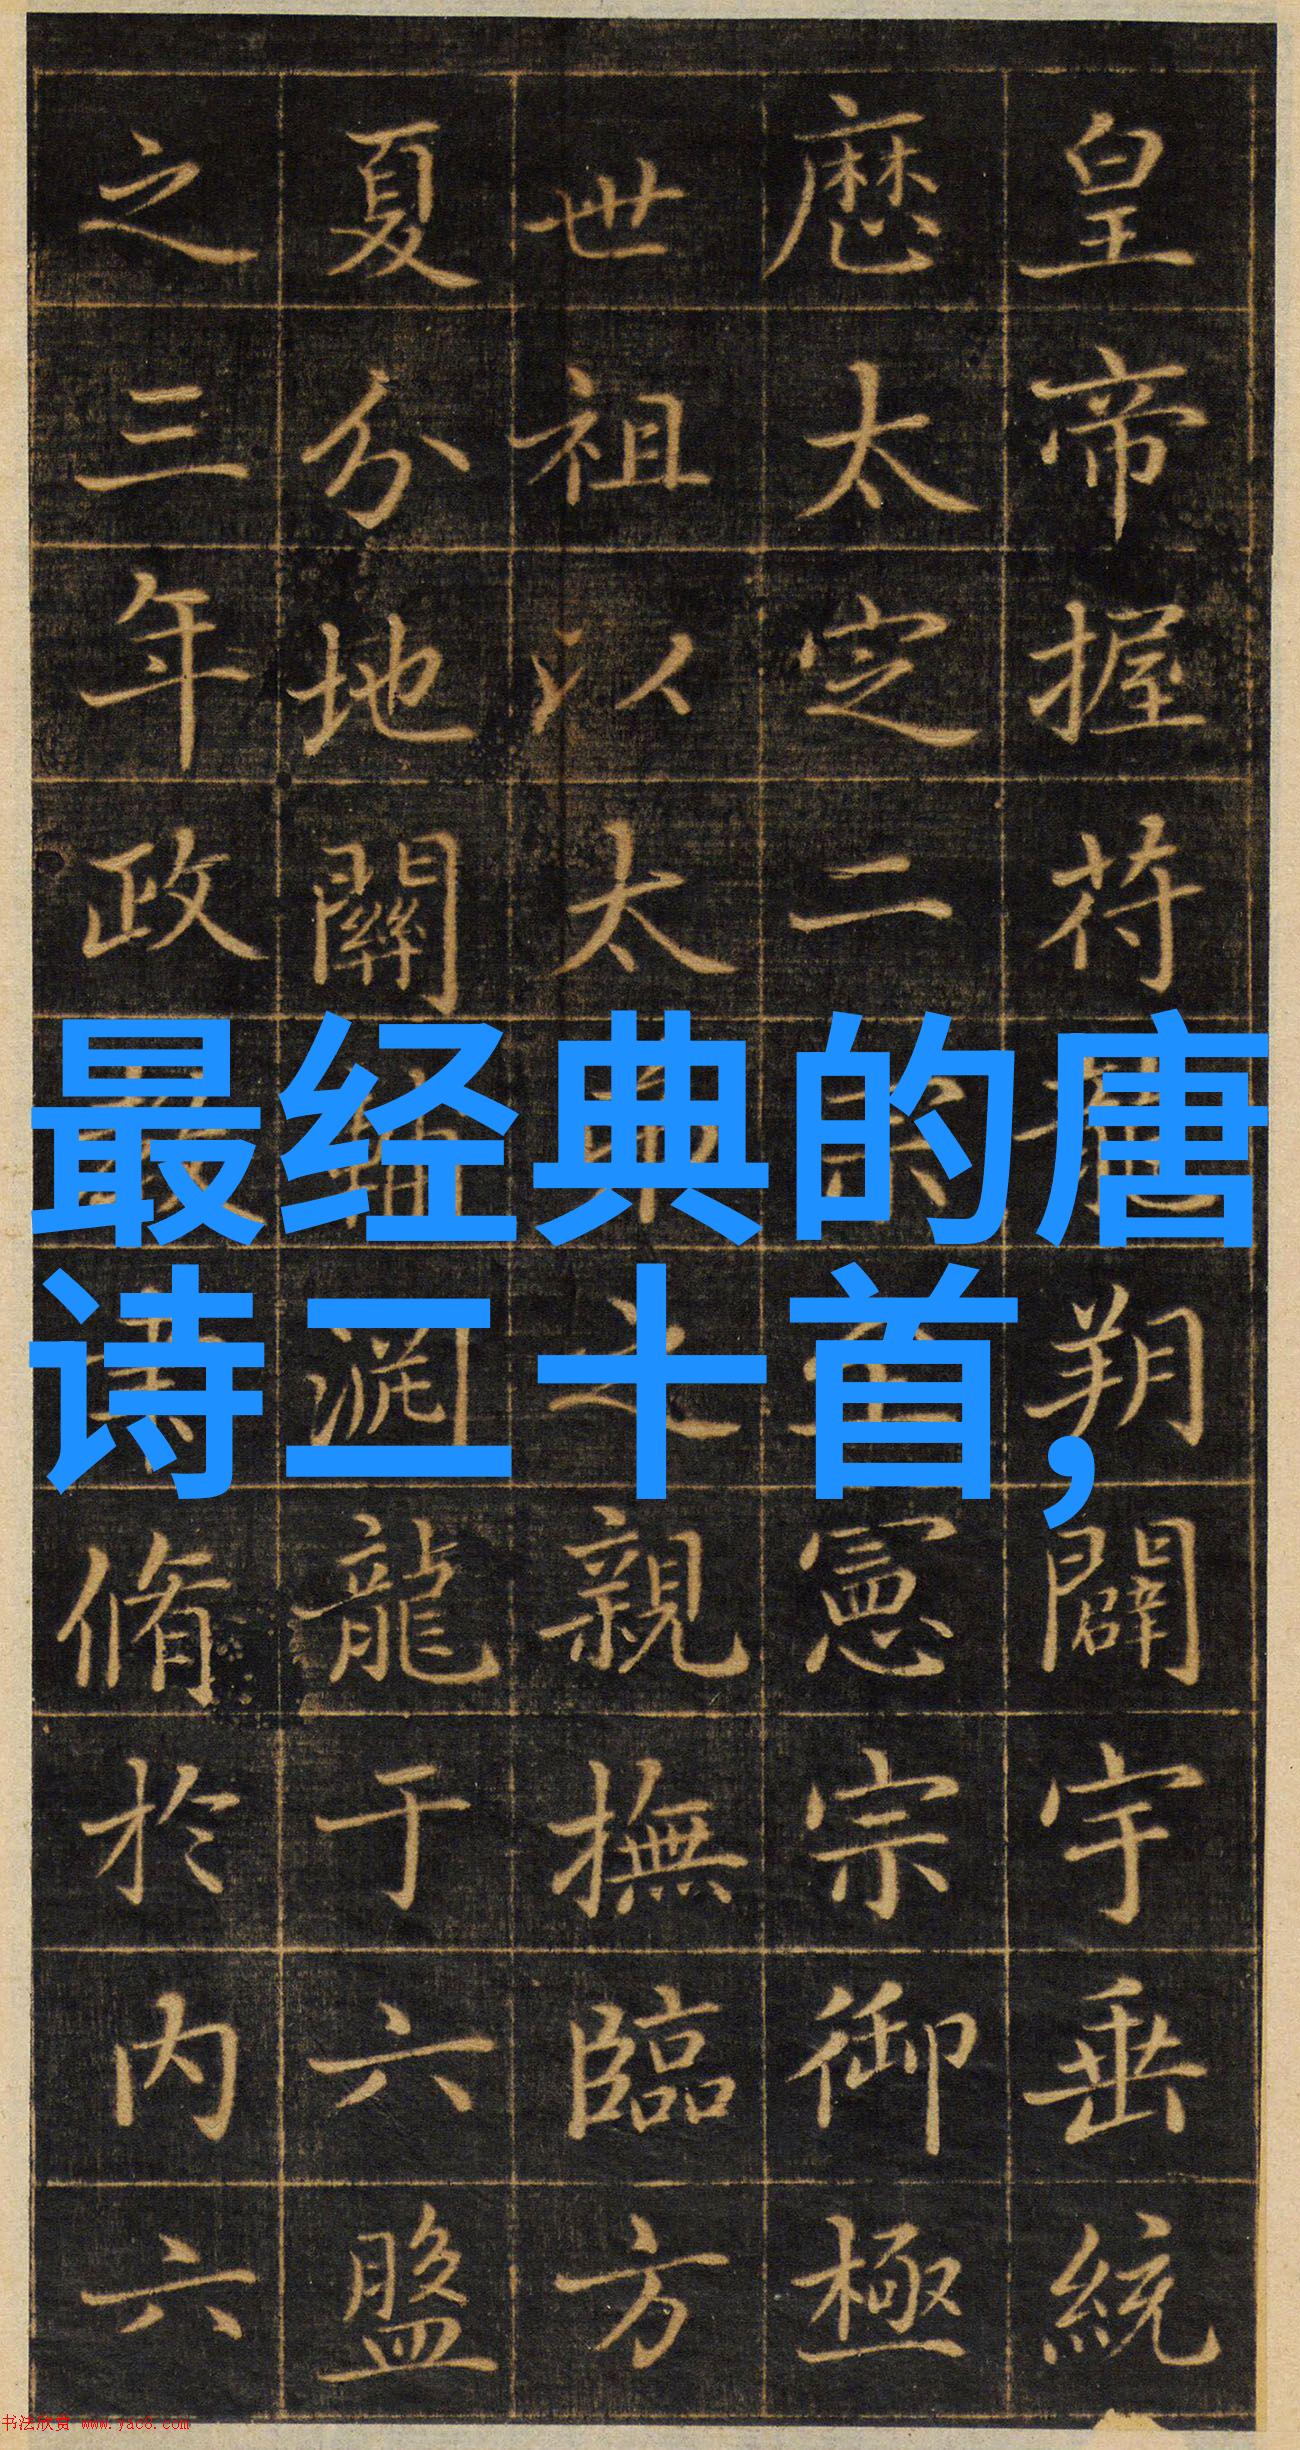 皇帝握符朔闢宇垂統
厯太定二宗憲宗御極
世祖以太弟之親撫臨方
夏分地關輔淵龍于六盤
之三年政教脩於内六
最经典的唐
诗二十首,
书法欣赏 www.yac8.com